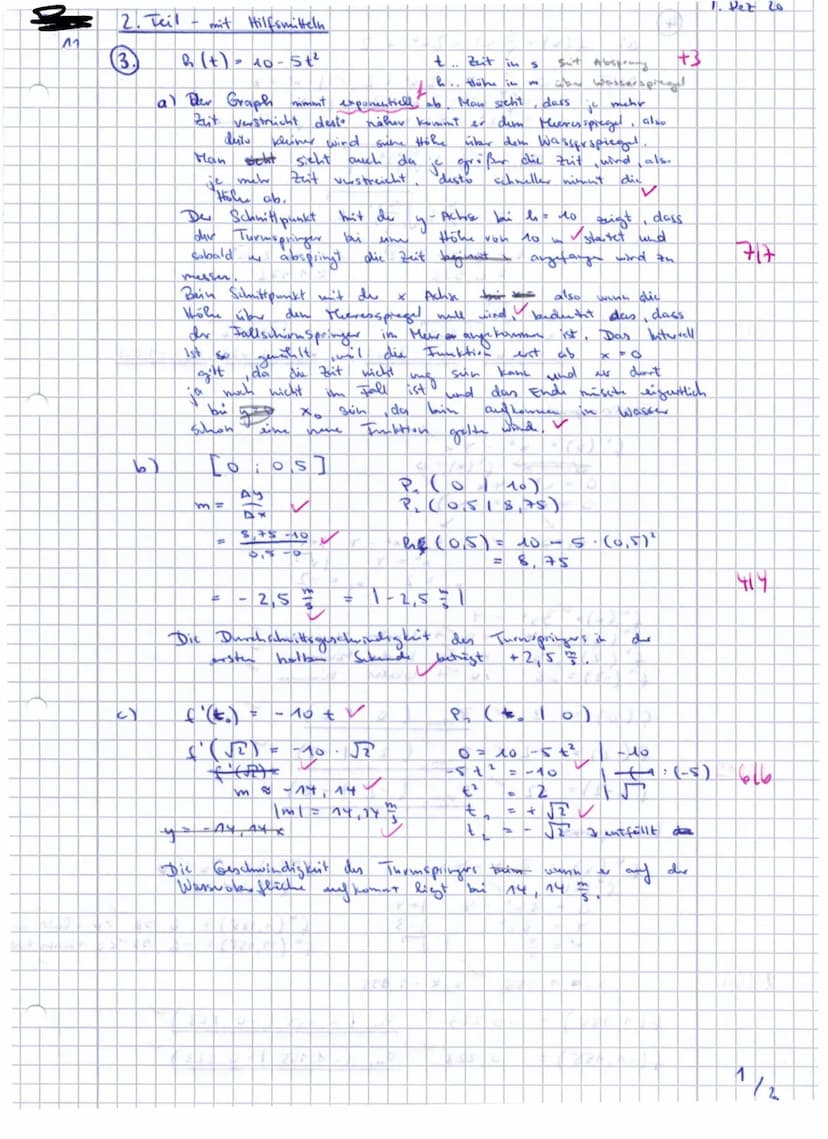 1. Dez 20
2. Teil - mit Hilfsmitteln
11
3. h(t) = 10 - 5t² t .. Zeit in s seit Absprung +3
h .. Höhe in m über Wasserspiegel
a) Der Graph nimmt exponentiell ab. Man sieht, dass je mehr
Zeit verstricht desto näher kommt er dem Meeresspiegel, also
desto kleiner wird seine Höhe über dem Wasserspiegel.
Man sieht auch da je größer die Zeit wird, also
je mehr Zeit verstreicht, desto schneller nimmt die
Höhe ab.
Der Schnittpunkt mit der y-Achse bei h = 10 zeigt, dass
der Turmspringer bei einer Höhe von 10 m startet und
sobald er abspringt die Zeit angefangen wird zu 7/7
messen.
Beim Schnittpunkt mit der x Achse also wenn die
Höhe über den Meeresspiegel null wird, bedeutet das, dass
der Fallschirmspringer im Meer angekommen ist. Das Intervall
ist so gewählt, weil die Funktion erst ab x = 0
gilt, da die Zeit nicht neg sein kann und er dort
ja noch nicht im Fall ist und das Ende müsste eigentlich
bei x₀ sein, da beim aufkommen in Wasser
schon eine neue Funktion gelten würde.
b) [0 ; 0,5]
P₁ (0 | 10)
m = Δy/Δx P₂ (0,5 | 8,75)
= (8,75 - 10)/(0,5 - 0) h(0,5) = 10 - 5 · (0,5)²
= 8,75
4/4
= - 2,5 m/s = |-2,5 m/s|
Die Durchschnittsgeschwindigkeit des Turmspringers in der
ersten halben Sekunde beträgt +2,5 m/s.
c) f'(t₀) = -10 t P₁ (t₀ | 0)
f'(√2) = -10 · √2 0 = 10 - 5t² | -10
f'(√2) = -5t² = -10 | : (-5) 6/6
m ≈ -14,14 t² = 2 | √
|m| = 14,14 m/s t₁ = + √2
y = -14,14x t₂ = - √2 → entfällt
Die Geschwindigkeit des Turmspringers wenn er auf der
Wasseroberfläche aufkommt liegt bei 14,14 m/s.
1/2